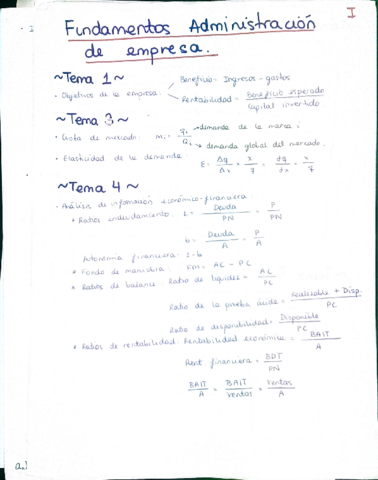 I
Fundamentos Administración
de empresa.
~Tema 1~
Beneficio = Ingresos - gastos
· Objetivos de la empresa
Rentabilidad = beneficio esperado / Capital invertido.
~Tema 3~
· Cuota de mercado: mi = qi / Qi → demanda de la marca i
→ demanda global del mercado.
· Elasticidad de la demanda: E = Δq / Δx · x / q = dq / dx · x / q
~Tema 4~
· Análisis de información económico-financiera:
* Ratios endeudamiento: L = Deuda / PN = P / PN
b = Deuda / A = P / A
Autonomía financiera: 1-b
* Fondo de maniobra: FM = AC - PC
* Ratios de balance: Ratio de liquidez = AC / PC
Ratio de la prueba ácida = Realizable + Disp. / PC
Ratio de disponibilidad = Disponible / PC
* Ratios de rentabilidad: Rentabilidad económica = BAIT / A
Rent financiera = BDT / PN
BAIT / A = BAIT / Ventas · Ventas / A
a.)